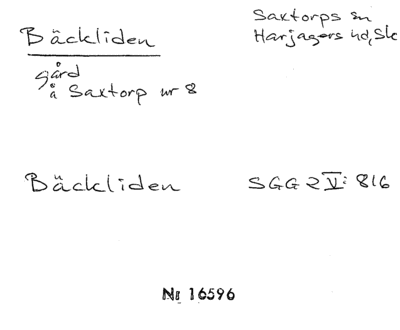 Bäckliden
Saxtorps sn
Harjagers hd, Sk
gård
å Saxtorp nr 8
Bäckliden
SGG 2 V: 816
Nr 16596